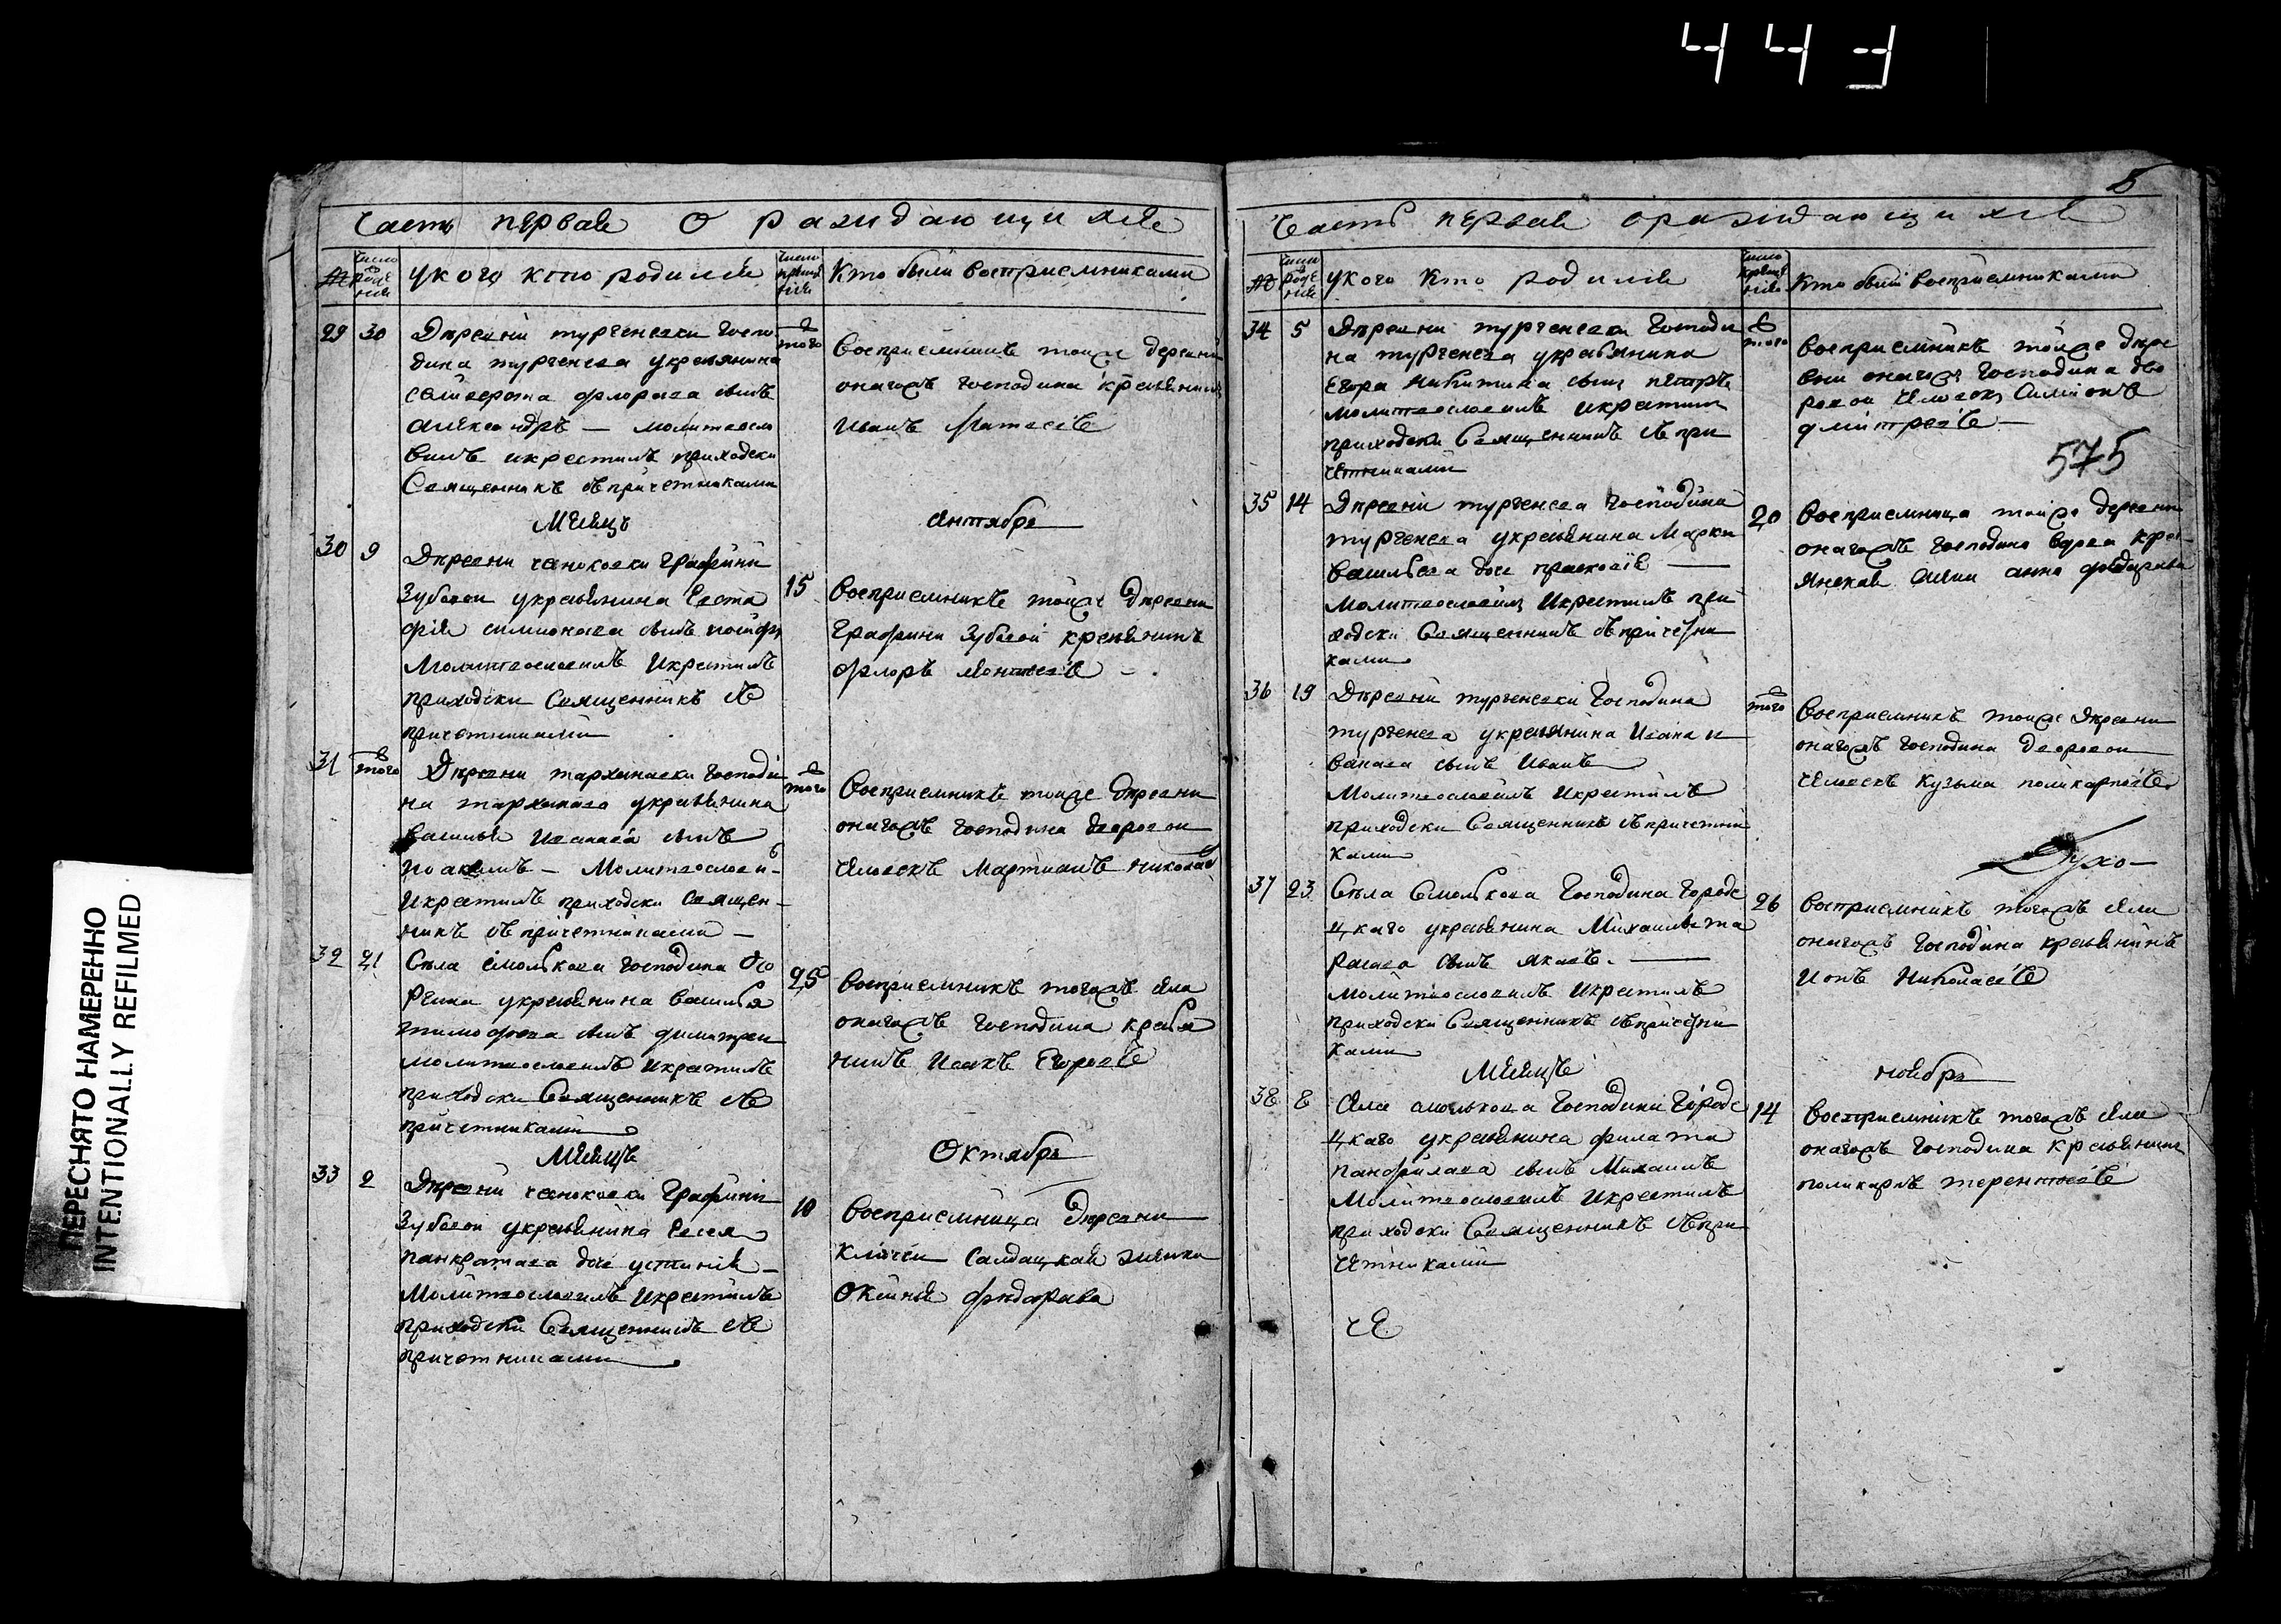 443
5
Часть первая О раждающихся
№
число рожденія
У кого кто родился
число крещенія
Кто были восприемниками
29 30 Дпревни тургеневки Госпо
дина тургенева укрестьянина
сынъ
Александръ — молитвосло
вилъ икрестилъ приходски
Священникъ съпричетниками
того
Восприемникъ тойже деревни
оногожъ Господина крестьянинъ
Иванъ Матвевъ
Месяцъ сентябрь
30 9 Дпревни Графини
Зубовой укрестьянина Евста
фия симионова сынъ
Молитвословилъ Икрестилъ
приходски Священникъ съ
причетниками
15 Восприемникъ тойже дпревни
Графини Зубовой крестьянинъ
флоръ
31 того Дпревни тарханавки Господи
на тарханова укрестьянина
василья Иванава сынъ
Иоакимъ — Молитвослови
Икрестилъ приходски Священ-
никъ съпричетниками —
того
Восприемникъ тойже дпревни
оногожъ Господина дворовои
человекъ Мартианъ николаевъ
32 21 Села смолькова Господина
укрестьянина василья
тимофева сынъ димитреи
молитвословилъ Икрестилъ
приходски Священникъ съ
причетниками
25 Восприемникъ тогожъ села
оногожъ Господина крестья
нинъ Исакъ Егоровъ
Месяцъ Октябрь
33 2 Дпревни Графини
Зубовои укрестьянина Евсея
панкратова дочь устиния —
Молитвословилъ Икрестилъ
приходски Священникъ съ
причетниками
10 Восприемница дпревни
Ключеи Салдацкая жинка
Оксинья фидорава
Часть первая о раждающихся
№
число рожденія
укого Кто родился
число крещенія
Кто были восприемниками
34 5 Дпревни тургеневки Господи
на тургенева укрестьянина
Егора никитина сынъ петръ
молитвословилъ икрестилъ
приходски Священникъ съпри
четниками
того
Восприемникъ тойже дпре
вни оногожъ Господина дво
ровои человекъ Симионъ
дмитревъ —
575
35 14 Дпревни тургенева Господина
тургенева укрестьянина Марки
васильева дочь прасковія —
Молитвословилъ Икрестилъ при
ходски Священникъ съпричетни
ками
20 Восприемница тойже деревни
оногожъ Господина вдова кре
янская анна фидарава
36 19 Дпревни тургеневки Господина
тургенева укрестьянина Ивана и
ванова сынъ Иванъ
Молитвословилъ Икрестилъ
приходски Священникъ съпричетни
ками
того
Восприемникъ тойже дпревни
оногожъ Господина дворовои
человекъ Кузьма поликарповъ
Духо-
37 23 Села Смолькова Господина Городе
цкаго укрестьянина Михаила та
расова сынъ яковъ. —
Молитвословилъ Икрестилъ
приходски Священникъ съпричетни
ками
26 восприемникъ тогожъ села
оногожъ Господина крестьянинъ
Ионъ Николаевъ
Месяцъ ноябрь
38 8 села смолькова Господина Городе
цкаго укрестьянина филата
панфилава сынъ Михаилъ
Молитвословилъ Икрестилъ
приходски Священникъ съпри
четниками
14 Восприемникъ тогожъ села
оногожъ Господина Крестьянинъ
поликарпъ терентьевъ
че
ПЕРЕСНЯТО НАМЕРЕННО
INTENTIONALLY REFILMED